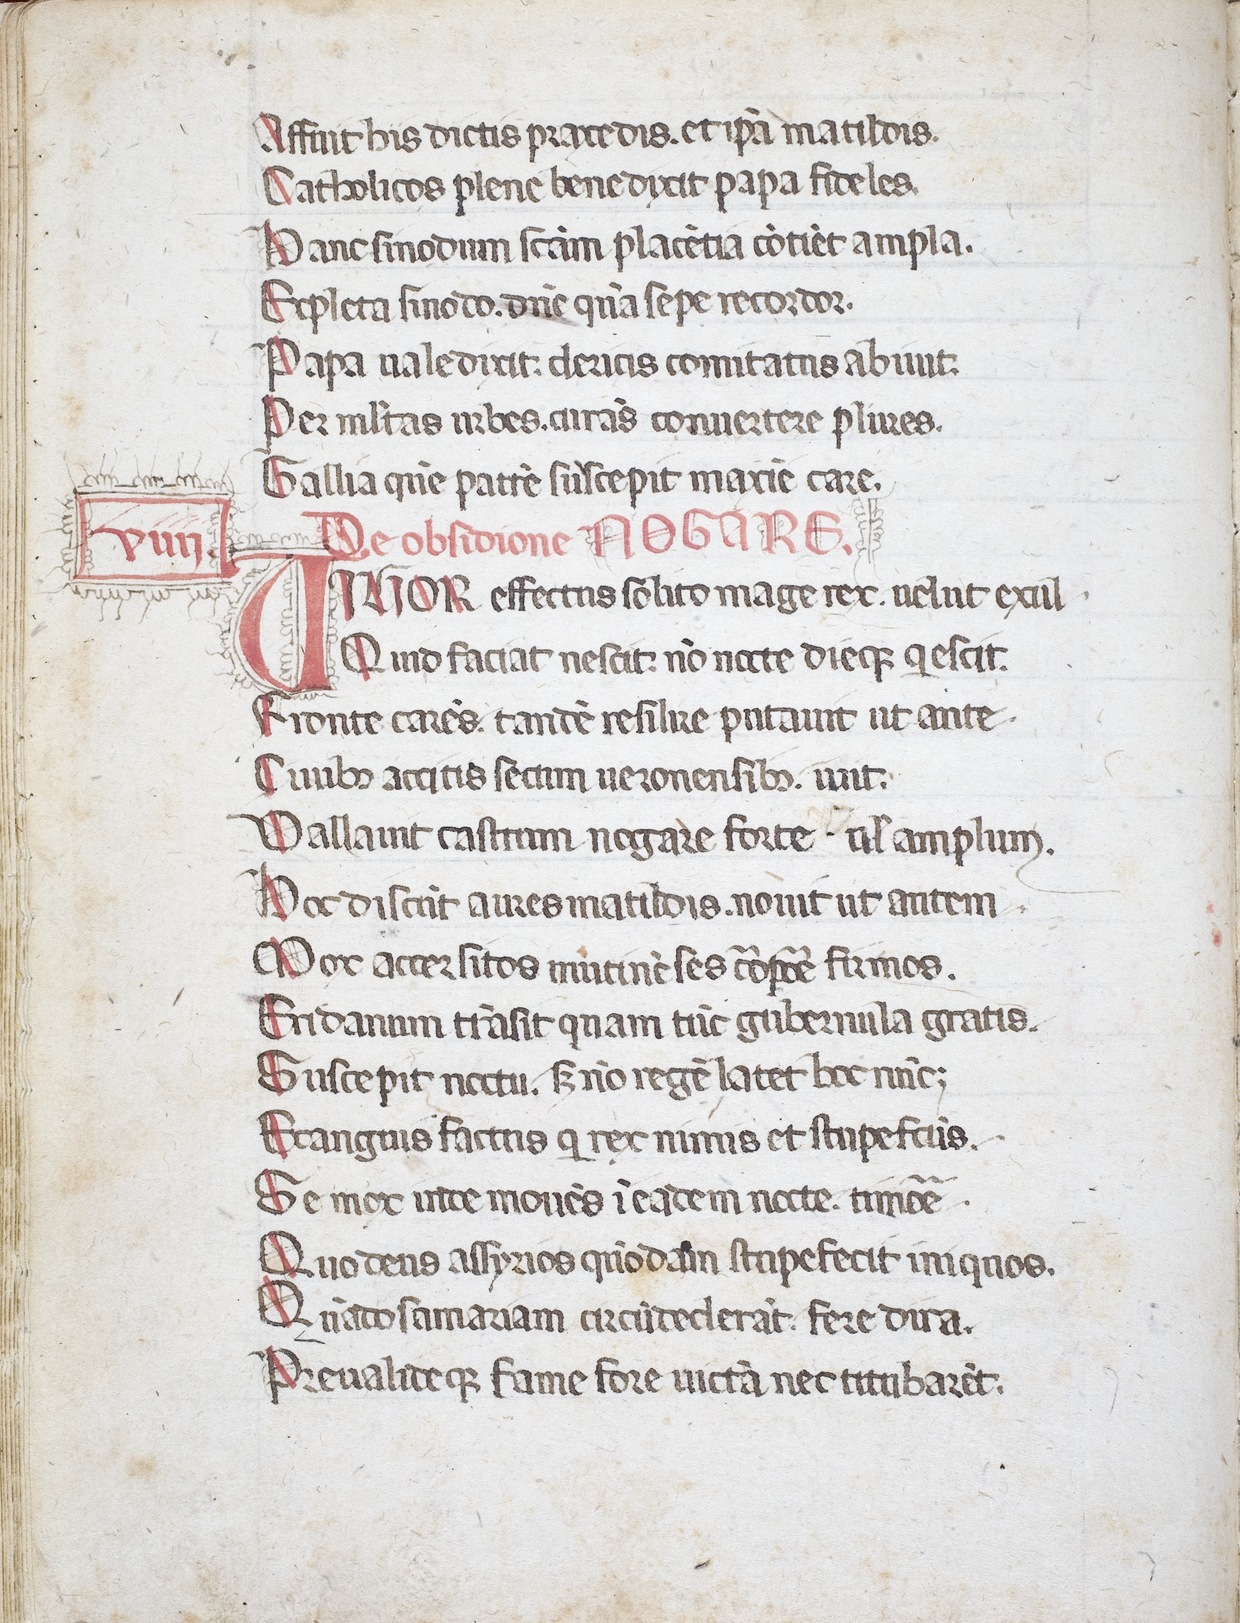 Affuit his dictis praxedis. et ip̄a matildis.
Catholicos plene benedixit papa fideles.
Hanc sinodum sc̄am placētia cōtiēt ampla.
Expleta sinodo. dn̄e qua sepe recordor.
Papa ualedixit. clericis comitatus abiuit.
Per ml̄tas urbes. curās conuertere plures.
Gallia que patrē suscepit maxie care.
viiij.
De obsidione NOGARE.
UIlIOR effectus solito mage rex. uelut exul
Quid faciat nescit. nō nocte dieqꝫ qescit.
Fronte carēs. tandē resilire putauit ut ante.
Ciuibꝫ accitis secum ueronensibꝫ. iuit.
Vallauit castrum nogare forte. ul̄ amplum.
Hoc discūt aures matildis. nouit ut autem
Mox accersitos mutinēses cōpoē firmos.
Eridanum trāsit quam tūc gubernula gratis.
Suscepit noctu. sꝫ nō regē latet hoc nūc;
Exanguis factus q rex nimis et stupefcūs.
Se mox inde mouēs ī eadem nocte. timōē.
Quo deus assyrios quodam stupefecit iniquos.
Quādo samariam circūdederāt. fere dira.
Preualideqꝫ fame fore uictā nec titubarēt.